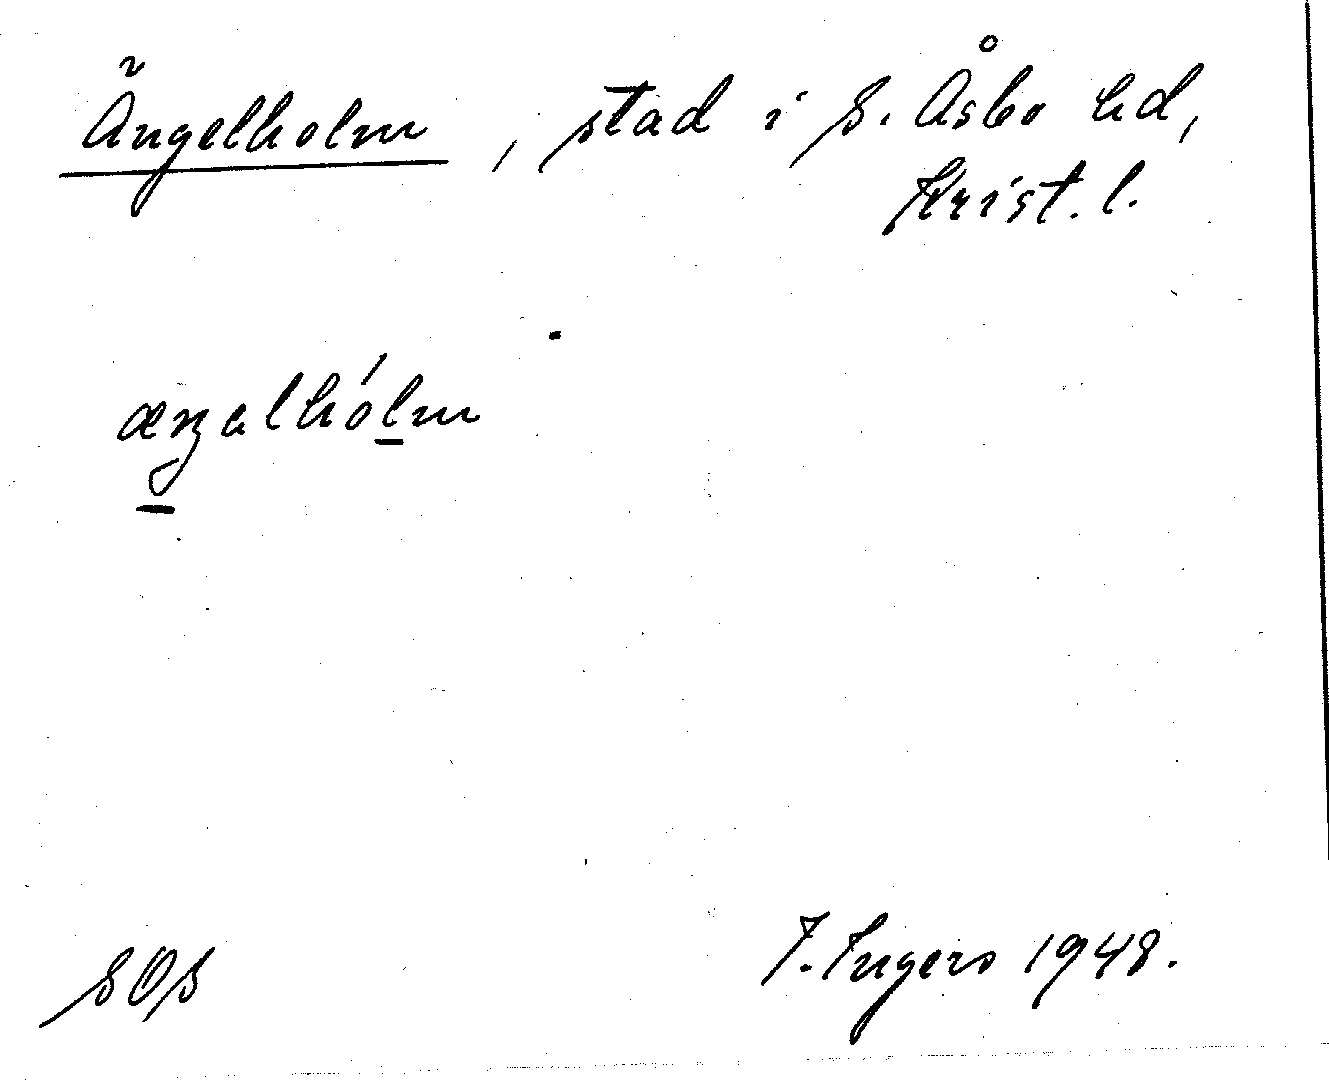 Ängelholm, stad i S. Åsbo hd,
Krist. l.
æŋəlhólm
SOS
I. Ingers 1948.